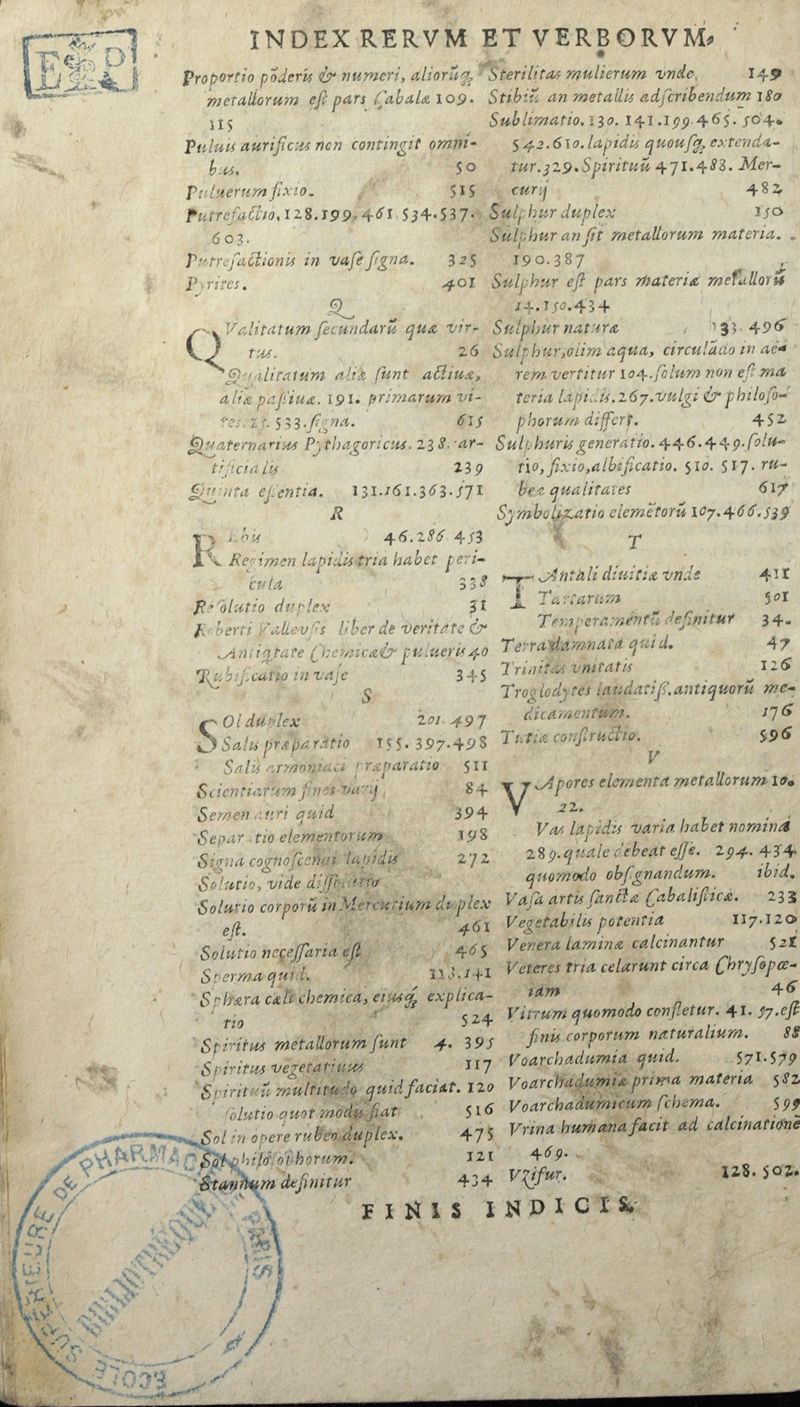 INDEX RERVM ET VERBORVM,
Proportio põderis & numeri, aliorũq;
metallorum est pars Cabalæ 109.
115
Puluis aurificus non contingit omni-
bus. 50
Puluerum fixio. 515
Putrefactio, 128.199.461 534.537.
603.
Putrefactionis in vase signa. 325
Pyrites. 401
Q
QValitatum secundarũ quæ vir-
tus. 26
Qualitatum aliæ sunt actiuæ,
aliæ passiuæ. 191. primarum vi-
533. signa. 615
Quaternarius Pythagoricus. 238. ar-
tificialis 239
Quinta essentia. 131.161.363.571
R
Rebus 46.286 453
Regimen lapidis tria habet peri-
cula 338
Resolutio duplex 31
Roberti Vallensis liber de veritate &
Antiqtate Chemicæ & pulueris 40
Rubificatio in vase 345
S
SOl duplex 201. 497
Salis præparatio 155. 397.498
Salis armoniaci præparatio 511
Scientiarum fines varij 84
Semen auri quid 394
Separatio elementorum 198
Signa cognoscendi lapidis 272
Solutio, vide dissolutio
Solutio corporũ in Mercurium duplex
est. 461
Solutio necessaria est 465
Sperma quid. 113.141
Sphæra cæli chemica, eiusq; explica-
tio 524
Spiritus metallorum sunt 4. 395
Spiritus vegetatiuus 117
Spirituũ multitudo quid faciat. 120
solutio quot modis fiat 516
Sol in opere rubeo duplex. 475
Sol philosophorum. 121
Stannum definitur 434
Sterilitas mulierum vnde, 149
Stibiũ an metallis adscribendum 180
Sublimatio. 130. 141.199.465. 504.
542.610. lapidis quousq; extenda-
tur. 329. Spirituũ 471.488. Mer-
curij 482
Sulphur duplex 150
Sulphur an sit metallorum materia.
190.387
Sulphur est pars materiæ metallorũ
14.150.434
Sulphur naturæ 133. 496
Sulphur, olim aqua, circulãdo in ae-
rem vertitur 104. solum non est ma
teria lapidis. 267. vulgi & philoso-
phorum differt. 452
Sulphuris generatio. 446.449. solu-
tio, fixio, albificatio. 510. 517. ru-
beæ qualitates 617
Symbolizatio elemẽtorũ 107.466.539
T
TAntali diuitiæ vnde 411
Tartarum 501
Temperamentũ definitur 34.
Terra damnata quid. 47
Trinitas vnitatis 126
Troglodytes laudatiss. antiquorũ me-
dicamentum. 176
Tutiæ constructio. 596
V
VApores elementa metallorum 10.
22.
Vas lapidis varia habet nomina
289. quale debeat esse. 294. 434
quomodo obsignandum. ibid.
Vasa artis sanctæ Cabalisticæ. 233
Vegetabilis potentia 117.120
Venera laminæ calcinantur 521
Veteres tria celarunt circa Chrysopœ-
iam 46
Vitrum quomodo confletur. 41. 57. est
finis corporum naturalium. 88
Voarchadumia quid. 571.579
Voarchadumiæ prima materia 582
Voarchadumicum schema. 599
Vrina humana facit ad calcinationẽ
469.
Vzifur. 128. 502.
FINIS INDICIS.
E P
ECOLE SUPERIEURE DE PHARMACIE PARIS
BIBLIOTHEQUE